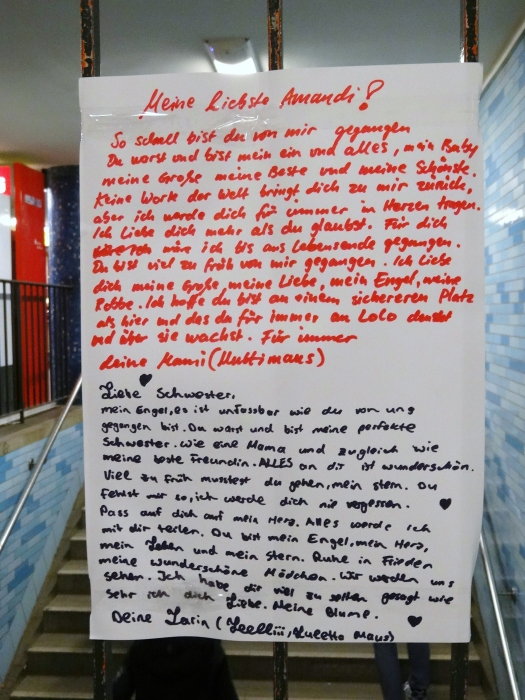 Meine Liebste Amandi!
So schnell bist du von mir gegangen
Du warst und bist mein ein und alles, mein Baby
meine Große meine Beste und meine Schönste.
Keine Worte der Welt bringt dich zu mir zurück,
aber ich werde dich für immer im Herzen tragen.
Ich Liebe dich mehr als du glaubst. Für dich
wäre ich bis ans Lebensende gegangen.
Du bist viel zu früh von mir gegangen. Ich Liebe
dich meine Große, meine Liebe, mein Engel, meine
Robbe. Ich hoffe du bist an einem sichereren Platz
als hier und das du für immer an Lolo denkst
und über sie wachst. Für immer
deine Mami (Muttimaus)
Liebe Schwester,
mein Engel, es ist unfassbar wie du von uns
gegangen bist. Du warst und bist meine perfekte
Schwester. Wie eine Mama und zugleich wie
meine beste Freundin. ALLES an dir ist wunderschön.
Viel zu früh musstest du gehen, mein Stern. Du
fehlst mir so, ich werde dich nie vergessen.
Pass auf dich auf mein Herz. Alles werde ich
mit dir teilen. Du bist mein Engel, mein Herz,
mein Leben und mein Stern. Ruhe in Frieden
meine wunderschöne Mädchen. Wir werden uns
sehen. Ich habe dir viel zu selten gesagt wie
Sehr ich dich Liebe. Meine Blume.
Deine Larin (Leelliii, Luletta Maus)